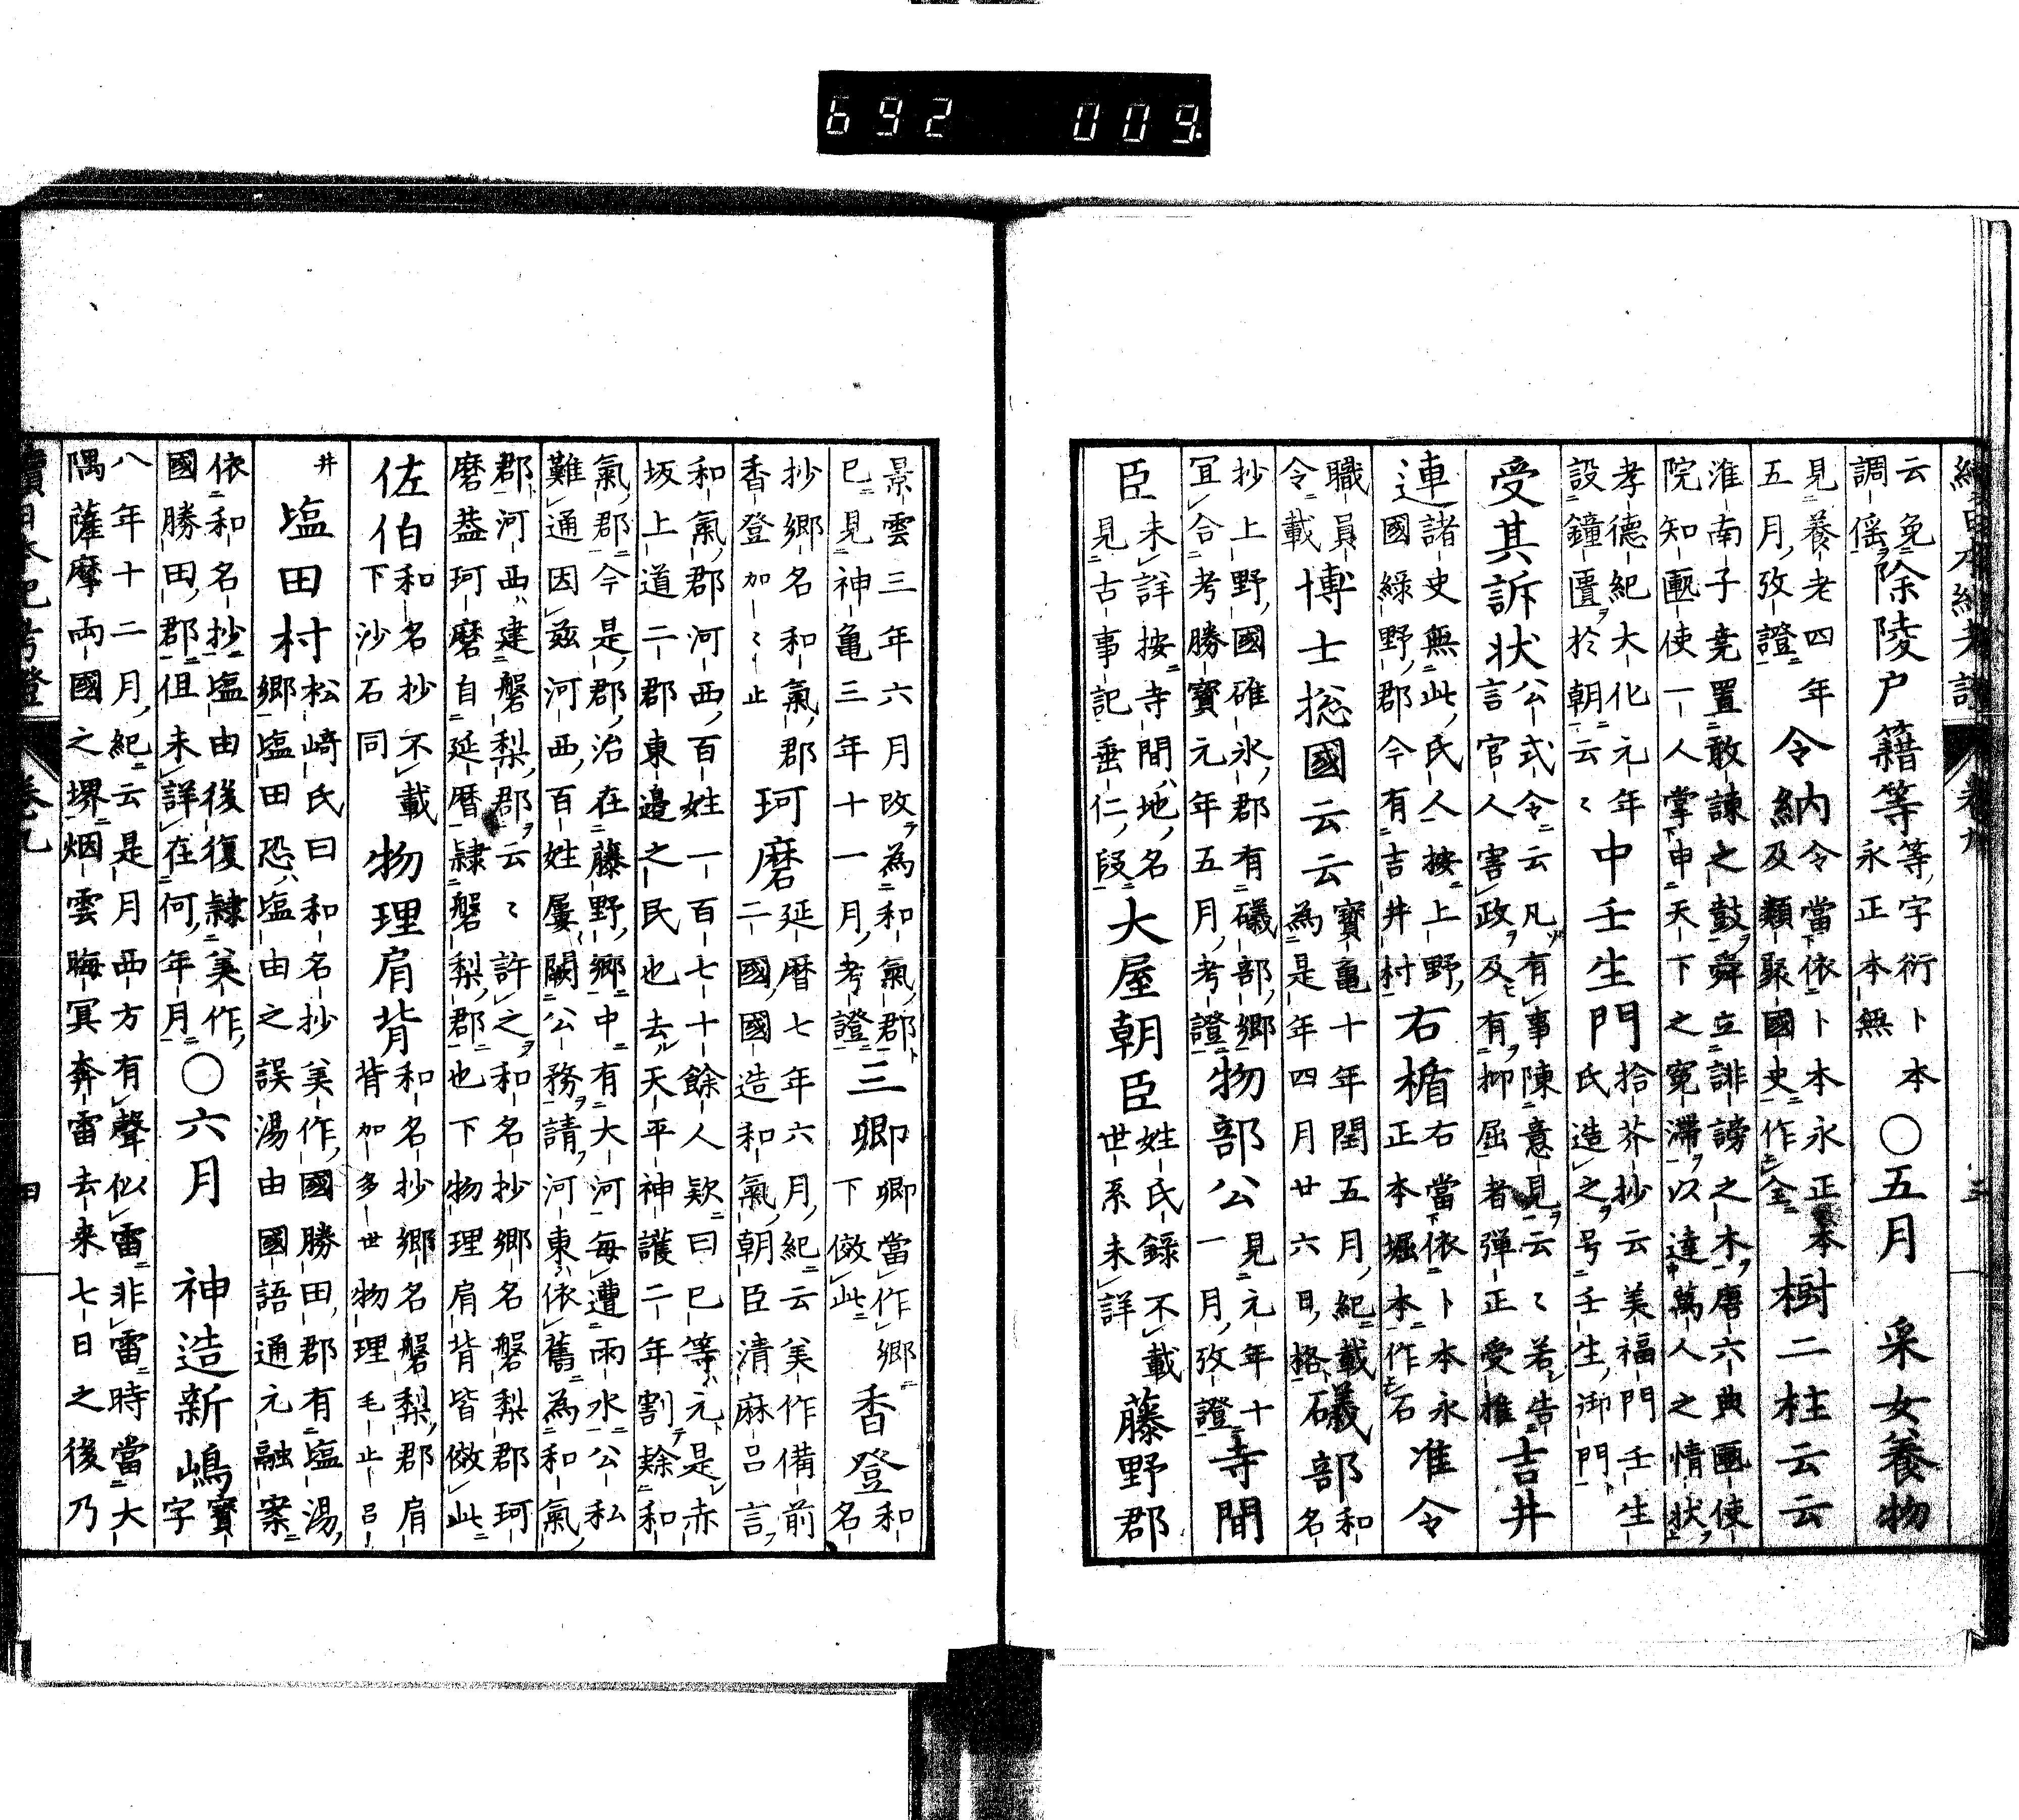 續日本紀考證 卷九 三
云免調徭除陵户籍等等字衍卜本永正本無〇五月 采女養物
見養老四年五月攷證 令納令當依卜本永正本及類聚國史作全 樹二柱云云
淮南子尭置敢諫之鼓舜立誹謗之木唐六典匭使院知匭使一人掌申天下之寃滯以達萬人之情状
孝德紀大化元年設鐘匱於朝云〻 中壬生門拾芥抄云美福門壬生氏造之号壬生御門
受其訴状公式令云凡有事陳意見云〻若告言官人害政及有抑屈者弾正受推 吉井
連諸史無此氏人按上野國緑野郡今有吉井村 右楯右當依卜本永正本堀本作石 准令
職員令載 博士捴國云云寳亀十年閏五月紀載為是年四月廿六日格 礒部和名
抄上野國碓氷郡有礒部郷冝合考勝寳元年五月考證 物部公見元年十一月攷證 寺間
臣未詳按寺間地名見古事記垂仁段 大屋朝臣姓氏錄不載世系未詳 藤野郡
景雲三年六月改為和氣郡已見神亀三年十一月考證 三卿卿當作郷下倣此 香登和名
抄郷名和氣郡香登加〻止 珂磨延暦七年六月紀云美作備前二國國造和氣朝臣清麻呂言
和氣郡河西百姓一百七十餘人欵曰已等元是赤坂上道二郡東邊之民也去天平神護二年割隸和
氣郡今是郡治在藤野郷中有大河每遭雨水公私難通因玆河西百姓屢闕公務請河東依舊為和氣
郡河西建磐梨郡云〻許之和名抄郷名磐梨郡珂磨葢珂磨自延暦隷磐梨郡也下物理肩背皆倣此
佐伯和名抄不載下沙石同 物理肩背和名抄郷名磐梨郡肩背加多世物理毛止呂
井 塩田村松﨑氏曰和名抄美作國勝田郡有塩湯郷塩田恐塩由之誤湯由國語通元融案
依和名抄塩由後復隷美作國勝田郡但未詳在何年月〇六月 神造新嶋寳字
八年十二月紀云是月西方有聲似雷非雷時當大隅薩摩兩國之堺烟雲晦冥奔雷去来七日之後乃
續日本紀考證 卷九 四